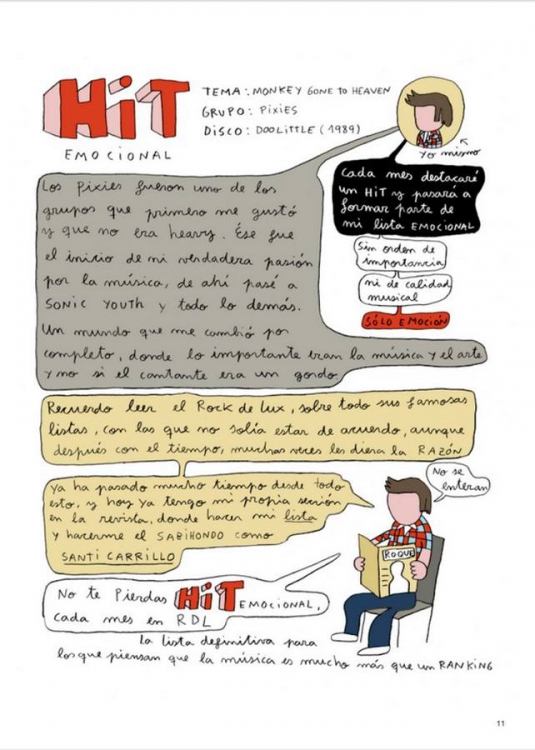 HiT
EMOCIONAL
TEMA: MONKEY GONE TO HEAVEN
GRUPO: PIXIES
DISCO: DOOLITTLE (1989)
Yo mismo
Cada mes destacaré
un HiT y pasará a
formar parte de
mi lista EMOCIONAL
Sin orden de
importancia
ni de calidad
musical
SÓLO EMOCIÓN
Los Pixies fueron uno de los
grupos que primero me gustó
y que no era heavy. Ése fue
el inicio de mi verdadera pasión
por la música, de ahí pasé a
SONIC YOUTH y todo lo demás.
Un mundo que me cambió por
completo, donde lo importante eran la música y el arte
y no si el cantante era un gordo
Recuerdo leer el Rock de Lux, sobre todo sus famosas
listas, con las que no solía estar de acuerdo, aunque
después con el tiempo, muchas veces les diera la RAZÓN
Ya ha pasado mucho tiempo desde todo
esto, y hoy ya tengo mi propia sección
en la revista, donde hacer mi lista
y hacerme el SABIHONDO como
SANTI CARRILLO
No se
enteran
ROQUE
No te Pierdas HiT EMOCIONAL,
cada mes en RDL
la lista definitiva para
los que piensan que la música es mucho más que un RANKING
11